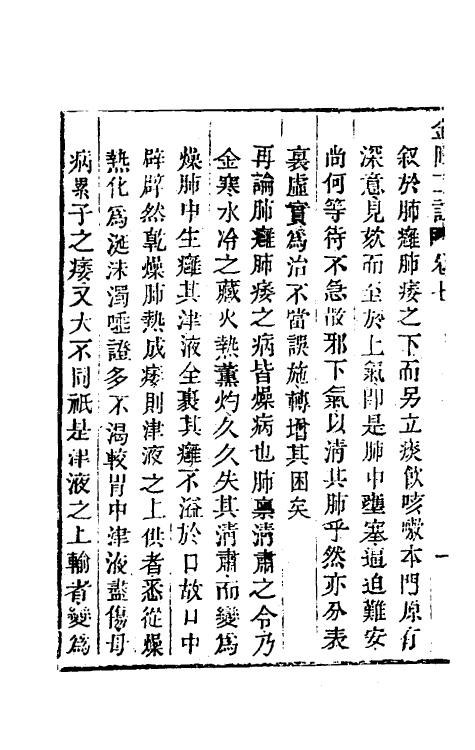 叙於肺癰肺痿之下而另立痰飲咳嗽本門原有
深意見欬而至於上氣即是肺中壅塞逼迫難安
尚何等待不急散邪下氣以清其肺乎然亦分表
裏虛實爲治不當誤施轉增其困矣
再論肺癰肺痿之病皆燥病也肺禀清肅之令乃
金寒水冷之藏火熱薰灼久久失其清肅而變爲
燥肺中生癰其津液全裹其癰不溢於口故口中
辟辟然乾燥肺熱成痿則津液之上供者悉從燥
熱化爲涎沫濁唾證多不渴較胃中津液盡傷母
病累子之痿又大不同祇是津液之上輸者變爲